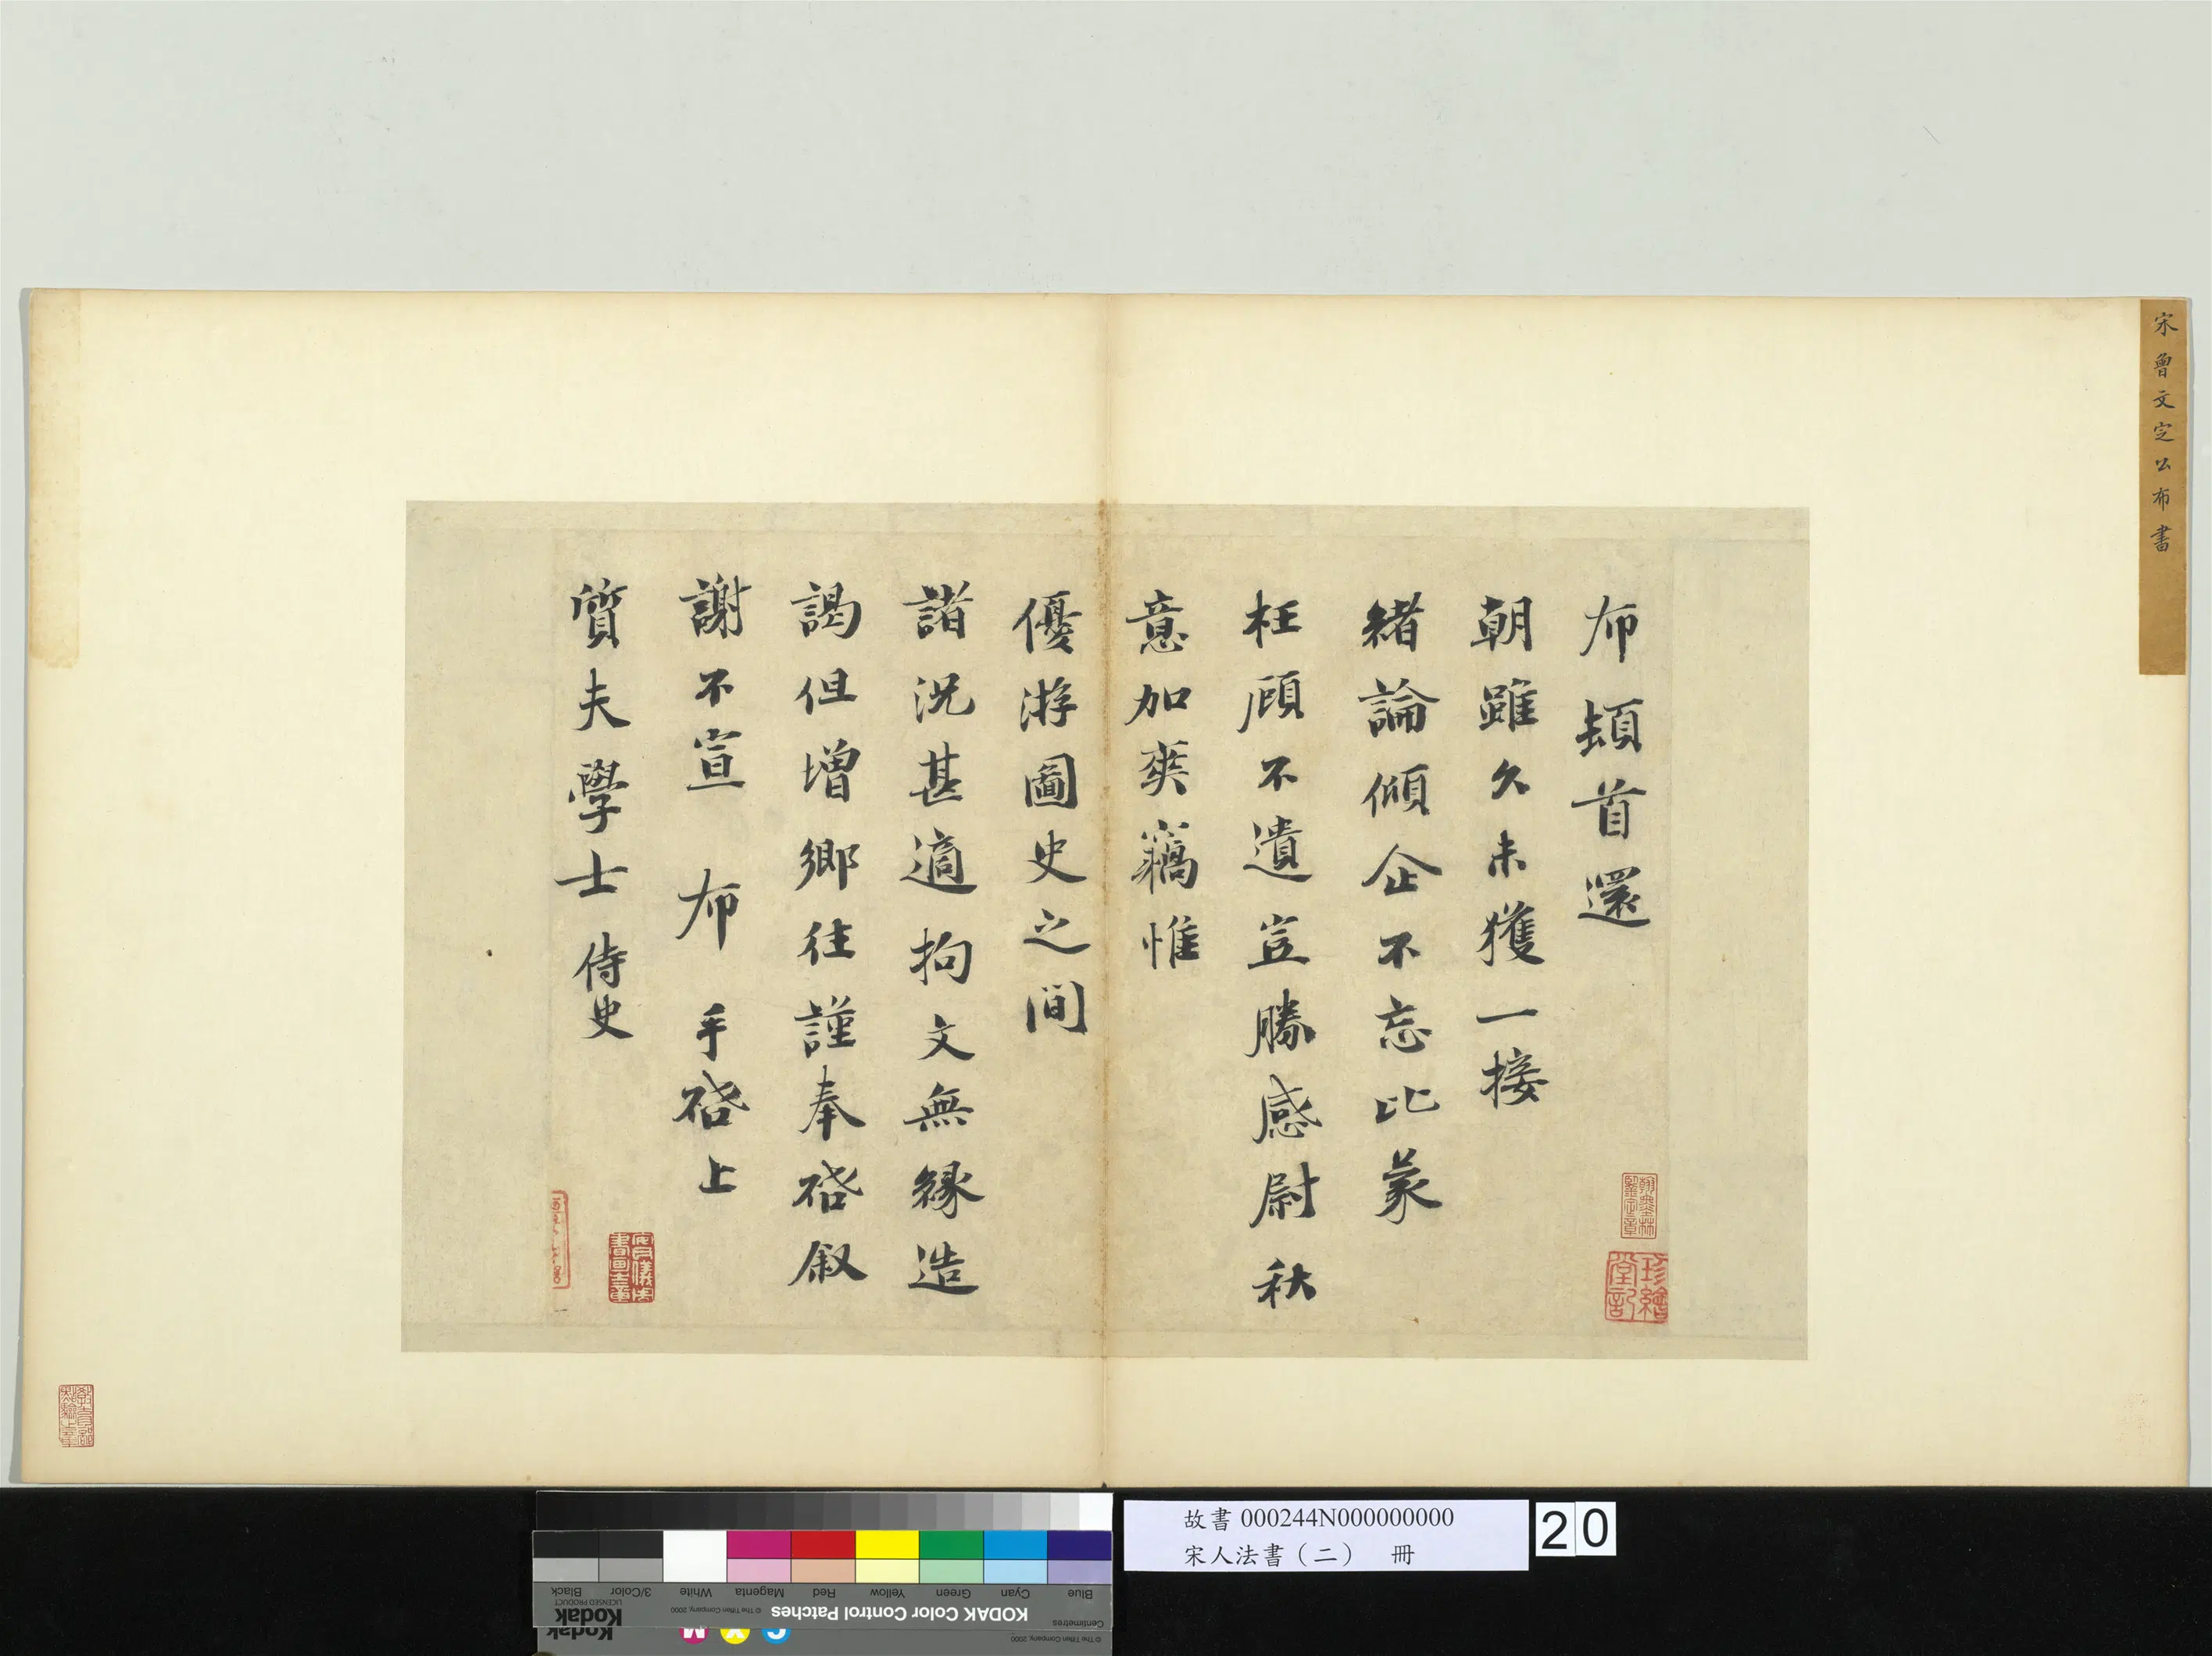 宋曾文定公布書
布頓首還
朝雖久未獲一接
緒論傾企不忘比蒙
枉顧不遺豈勝感尉秋
意加爽竊惟
優游圖史之間
諸況甚適拘文無緣造
謁但增鄉往謹奉啓敘
謝不宣 布 手啓上
質夫學士 侍史
翰墨林鑒定章
珍繪堂記
安儀周書畫之章
故書 000244N000000000
宋人法書（二） 冊
20
Centimetres
KODAK Color Control Patches
© The Tiffen Company, 2000
Kodak
LICENSED PRODUCT
Blue Cyan Green Yellow Red Magenta White 3/Color Black
© The Tiffen Company, 2000
C Y M
Kodak